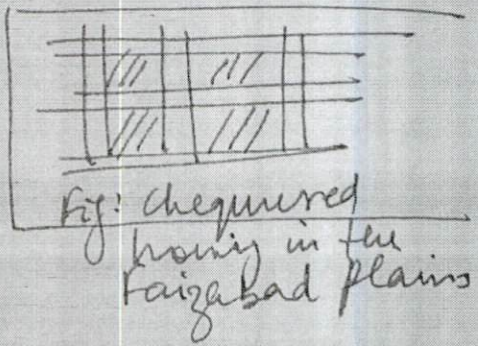 Fig: Chequered
housing in the
Faizabad Plains